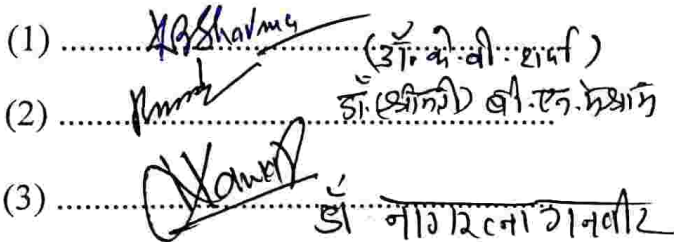 (1) .................... KBSharma (डॉ. के. बी. शर्मा)
(2) .................... डॉ. (श्रीमती) बी. एन. मेश्राम
(3) .................... डॉ नागरत्ना गनवीर